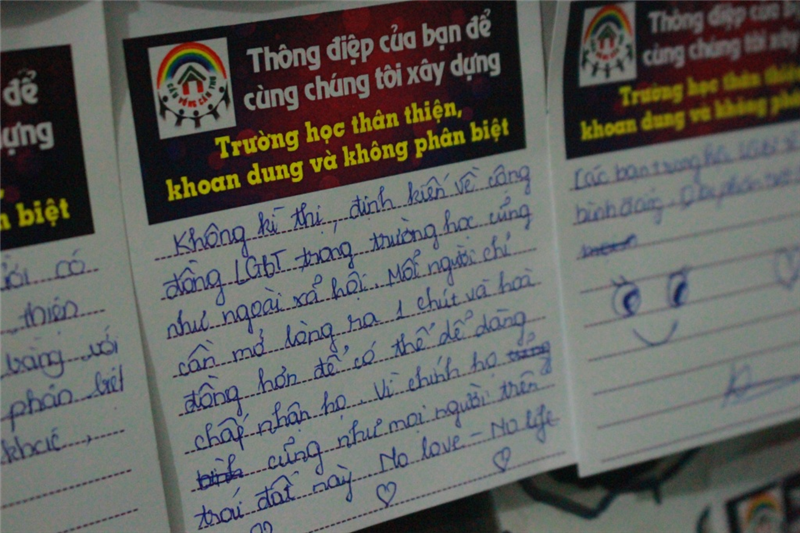 để
dựng
n biệt
ỏi có
thiện
bằng với
phân biệt
khác,
Thông điệp của bạn để
cùng chúng tôi xây dựng
Trường học thân thiện,
khoan dung và không phân biệt
Không kì thi, định kiến về cộng
đồng LGbT trong trường học cũng
như ngoài xả hội. Mổi người chỉ
cần mở lòng ra 1 chút và hoà
đồng hơn để có thể dể dàng
chấp nhận họ. Vì chính họ
cũng như mọi người trên
trái đất này No love - No life
Thông điệp của bạn
cùng chúng tôi xây
Trường học thân thiện
khoan dung và không phân
Các bạn trong
bình đẳng.